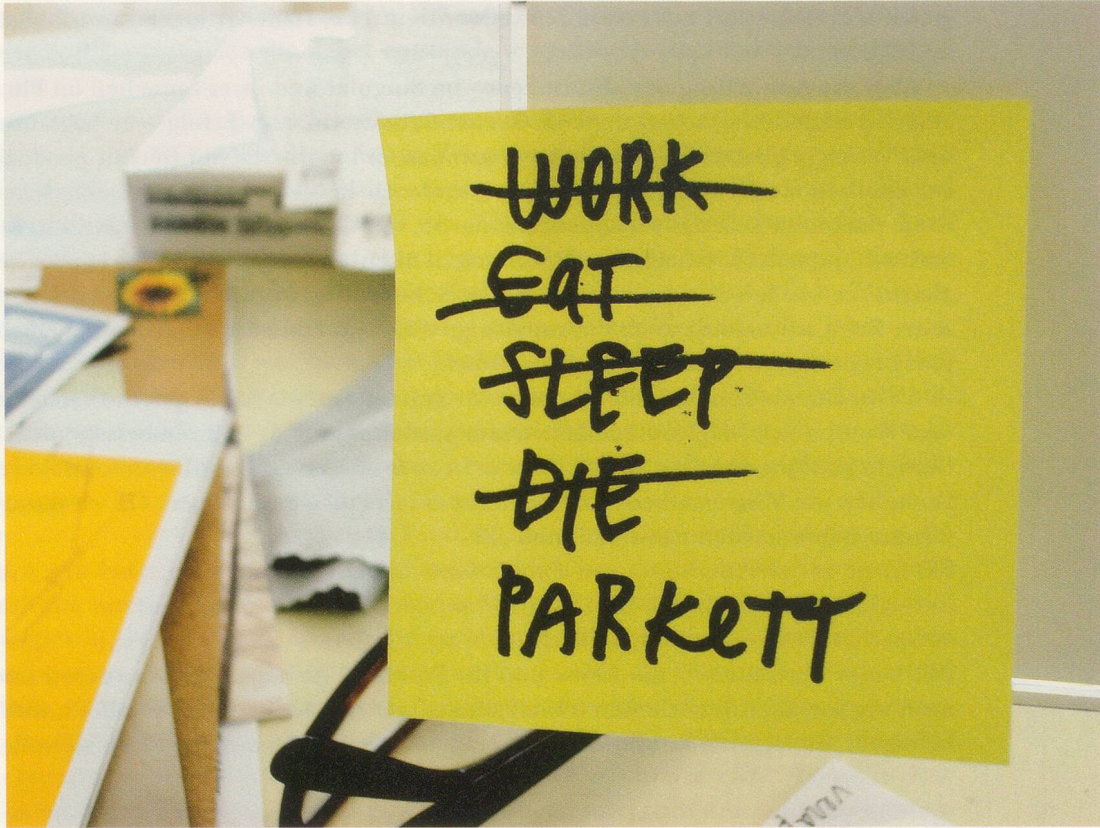 WORK
EaT
SLEEP
DIE
PARKeTT